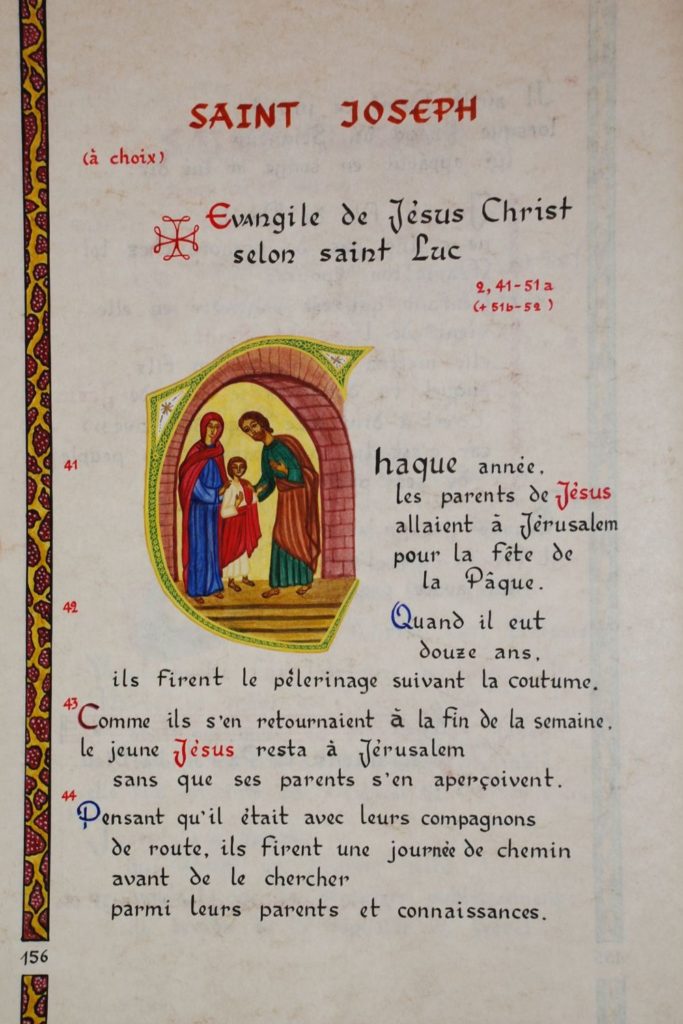 SAINT JOSEPH
(à choix)
Evangile de Jésus Christ
selon saint Luc
2, 41-51a
(+ 51b-52)
41 Chaque année,
les parents de Jésus
allaient à Jérusalem
pour la fête de
la Pâque.
42 Quand il eut
douze ans,
ils firent le pèlerinage suivant la coutume.
43 Comme ils s'en retournaient à la fin de la semaine,
le jeune Jésus resta à Jérusalem
sans que ses parents s'en aperçoivent.
44 Pensant qu'il était avec leurs compagnons
de route, ils firent une journée de chemin
avant de le chercher
parmi leurs parents et connaissances.
156